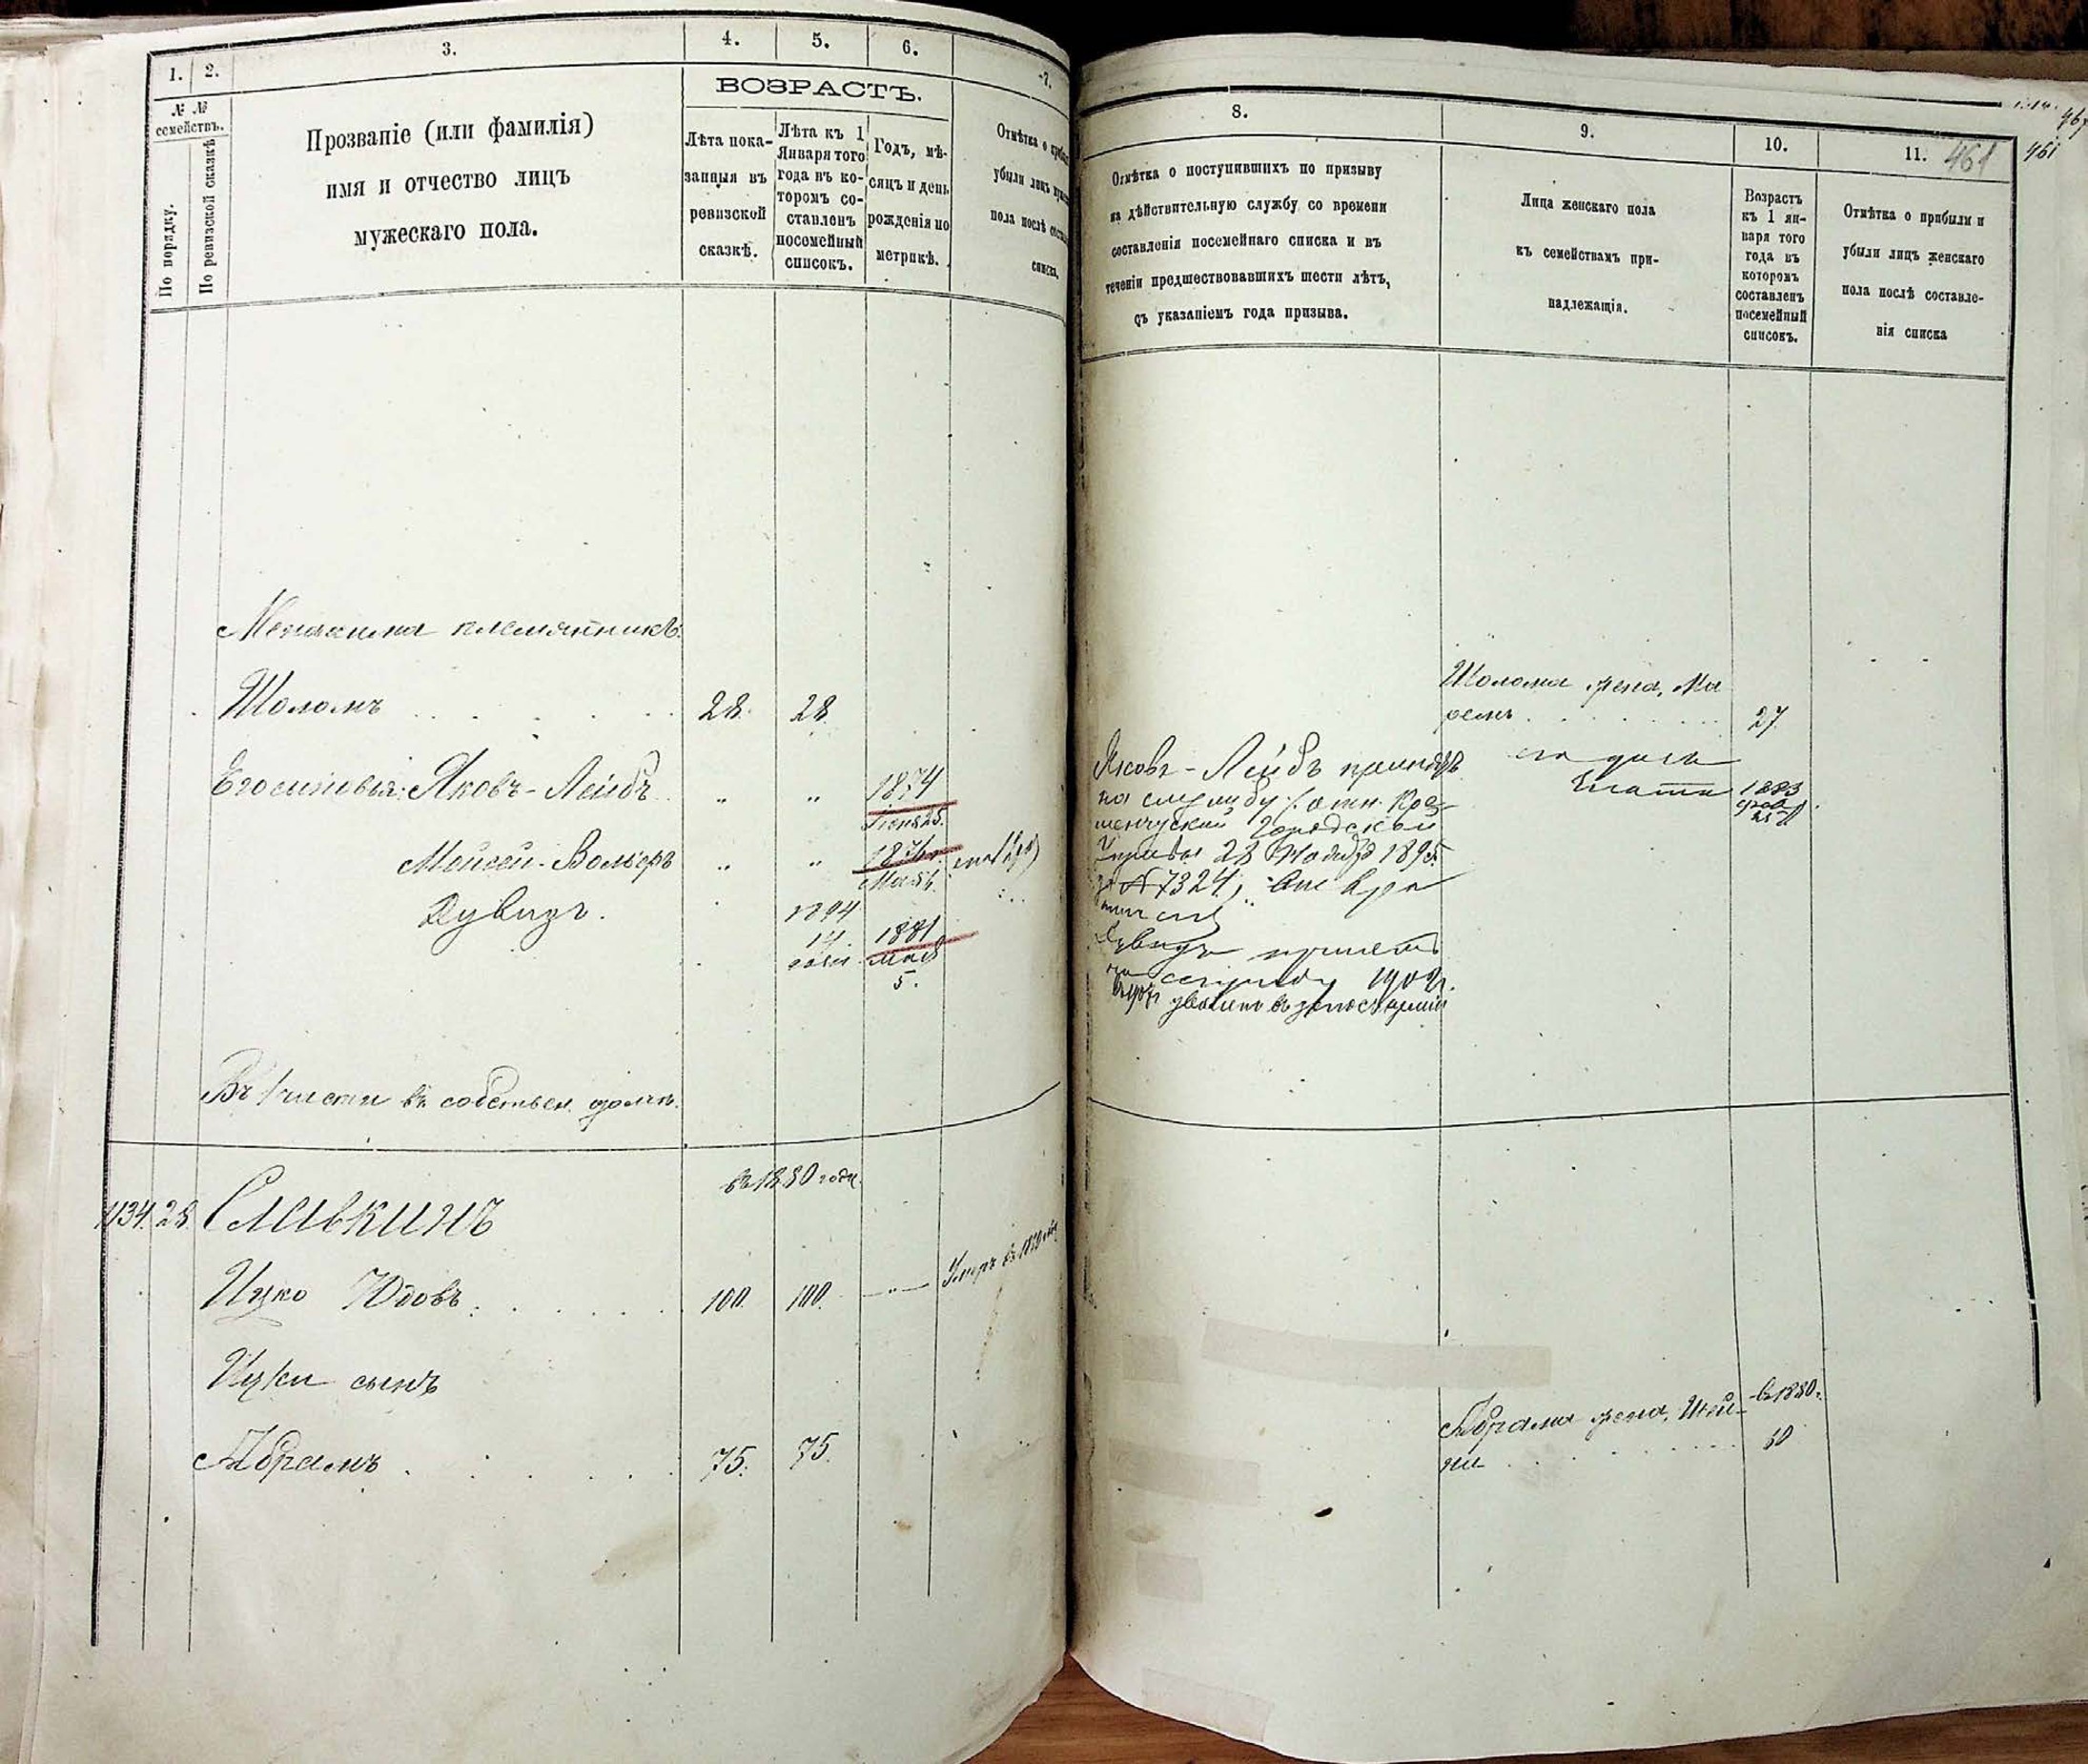 1.
2.
3.
4.
5.
6.
7.
№ №
семействъ.
По порядку.
По ревизской сказкѣ
Прозваніе (или фамилія)
имя и отчество лицъ
мужескаго пола.
ВОЗРАСТЪ.
Лѣта пока-
занныя въ
ревизской
сказкѣ.
Лѣта къ 1
Января того
года въ ко-
торомъ со-
ставленъ
посемейный
списокъ.
Годъ, мѣ-
сяцъ и день
рожденія по
метрикѣ.
Отмѣтка о
убыли лицъ
пола послѣ
списка.
Менахима племянникъ:
Шоломъ
28.
28.
Его сыновья: Яковъ-Лейбъ
"
"
1874
Іюня 25.
Мейсей-Вольфъ
"
"
1876г.
Мая 6.
Дувидъ.
1894
14.
1881
Мая
5.
Въ 1 части въ собствен. домѣ.
въ 1880 году.
1134.
28.
Славкинъ
Ицко Юдовъ
100.
100.
"
Умеръ въ
Ицки сынъ
Абрамъ
75.
75.
8.
9.
10.
11.
461
461
Отмѣтка о поступившихъ по призыву
на дѣйствительную службу со времени
составленія посемейнаго списка и въ
теченіи предшествовавшихъ шести лѣтъ,
съ указаніемъ года призыва.
Лица женскаго пола
къ семействамъ при-
надлежащія.
Возрастъ
къ 1 ян-
варя того
года въ
которомъ
составленъ
посемейный
списокъ.
Отмѣтка о прибыли и
убыли лицъ женскаго
пола послѣ составле-
нія списка
Шолома жена, Ма
27.
его дочь
1883
Яковъ-Лейбъ принятъ
на службу (отн. Кре-
менчугской Городской
Управы 28 Ноября 1895
за № 7324)
Дувидъ принятъ
на службу 1902г.
уволенъ въ запасъ арміи
Абрама жена, Шей-
въ 1880г.